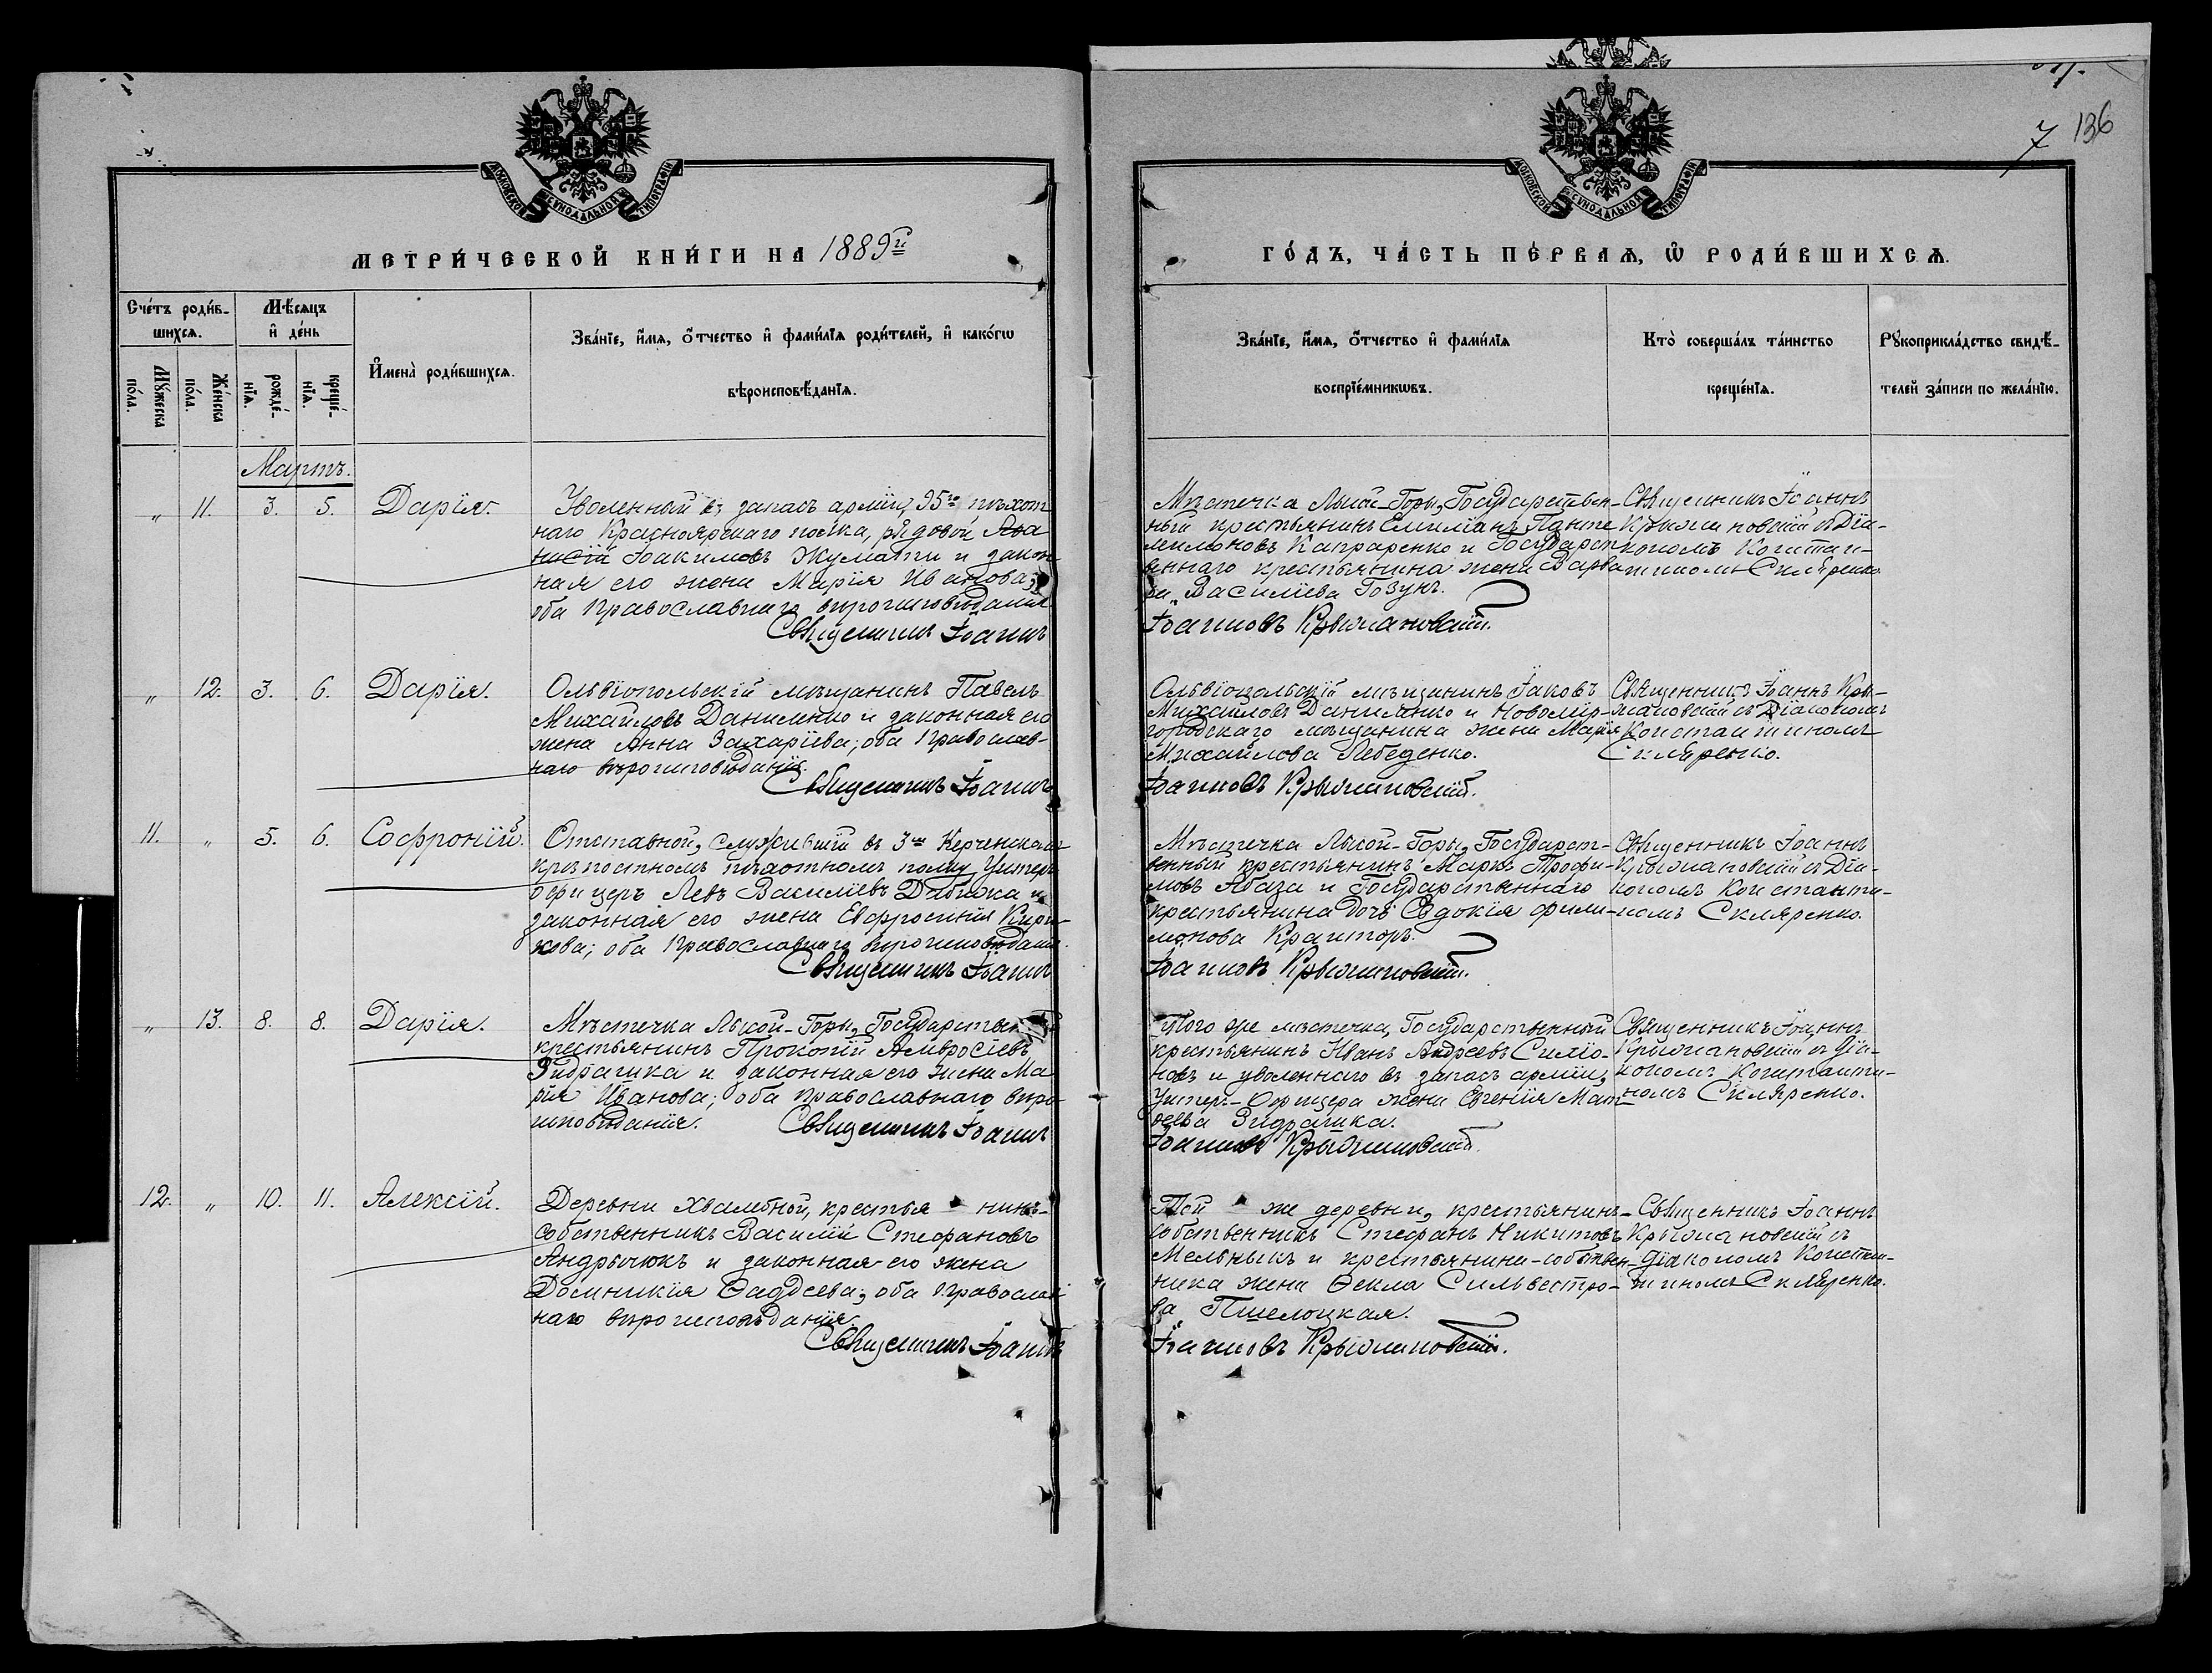 7 136
МОСКОВСКОЙ СѴНОДАЛЬНОЙ ТИПОГРАФІИ
МОСКОВСКОЙ СѴНОДАЛЬНОЙ ТИПОГРАФІИ
МЕТРИ́ЧЕСКОЙ КНИ́ГИ НА 1889й
ГО́ДЪ, ЧА́СТЬ ПЕ́РВАѦ, Ѡ РОДИ́ВШИХСѦ.
Сче́тъ роди́в-
шихсѧ.
Мꙋ́жеска
по́ла.
Же́нска
по́ла.
Мѣ́сѧцъ
и҆ де́нь
рожде́-
нїѧ.
креще́-
нїѧ.
И҆мена̀ роди́вшихсѧ.
Зва́нїе, и҆́мѧ, ѻ҆́тчество и҆ фами́лїѧ роди́телей, и҆ како́гѡ
вѣроисповѣ́данїѧ.
Зва́нїе, и҆́мѧ, ѻ҆́тчество и҆ фами́лїѧ
воспрїе́мникѡвъ.
Кто̀ соверша́лъ та́инство
креще́нїѧ.
Рꙋкоприкла́дство свидѣ́-
телей за́писи по жела́нїю.
Мартъ.
„ 11. 3. 5. Дарія.
Уволенный въ запасъ арміи, 95го пѣхот
наго Красноярскаго полка, рядовой Ѳа
насій Іоакимовъ Жулати и закон
ная его жена Марія Иванова;
оба Православнаго вѣроисповѣданія
Священникъ Іоаннъ
Мѣстечка Лысой-Горы, Государствен-
ный крестьянинъ Емиліанъ Панте
леимоновъ Капраренко и Государст
веннаго крестьянина жена Варва
ра Василіева Гозунъ.
Іоанновъ Крыжановскій.
Священникъ Іоаннъ
Крыжановскій съ Діа-
кономъ Констан-
тиномъ Скляренко.
„ 12. 3. 6. Дарія.
Ольвіопольскій мѣщанинъ Павелъ
Михайловъ Даниленко и законная его
жена Анна Захаріева; оба Православ-
наго вѣроисповѣданія.
Священникъ Іоаннъ
Ольвіопольскій мѣщанинъ Іаковъ
Михайловъ Даниленко и Новомир-
городскаго мѣщанина жена Марія
Михайлова Лебеденко.
Іоанновъ Крыжановскій.
Священникъ Іоаннъ Кры-
жановскій съ Діакономъ
Константиномъ
Скляренко.
11. „ 5. 6. Софроній.
Отставной, служившій въ 3мъ Керченскомъ
крѣпостномъ пѣхотномъ полку Унтеръ
офицеръ Левъ Василіевъ Дибижа и
законная его жена Евфросинія Кири
хова; оба Православнаго вѣроисповѣданія.
Священникъ Іоаннъ
Мѣстечка Лысой-Горы, Государст-
венный крестьянинъ Маркъ Трофи-
мовъ Абаза и Государственнаго
крестьянина дочь Евдокія Фили-
монова Кранторъ.
Іоанновъ Крыжановскій.
Священникъ Іоаннъ
Крыжановскій съ Діа-
кономъ Константи-
номъ Скляренко.
„ 13. 8. 8. Дарія.
Мѣстечка Лысой-Горы, Государствен
крестьянинъ Прокопій Амвросіевъ
Зидрашка и законная его жена Ма
рія Иванова; оба Православнаго вѣро
исповѣданія.
Священникъ Іоаннъ
Того же мѣстечка, Государственный
крестьянинъ Иванъ Андреевъ Симіо-
новъ и уволеннаго въ запасъ арміи,
Унтеръ-Офицера жена Евгенія Мат
ѳеева Зидрашка.
Іоанновъ Крыжановскій.
Священникъ Іоаннъ
Крыжановскій съ Діа-
кономъ Константи-
номъ Скляренко.
12. „ 10. 11. Алексій.
Деревни Хвалибной, крестья нинъ-
собственникъ Василій Стефановъ
Андрьчюкъ и законная его жена
Доминикія Ѳаддеева; оба Православ
наго вѣроисповѣданія.
Священникъ Іоаннъ
Той же деревни, крестьянинъ-
собственникъ Стефанъ Никитовъ
Мельныкъ и крестьянина-собствен-
ника жена Ѳекла Сильвестро-
ва Пшелоцкая.
Іоанновъ Крыжановскій.
Священникъ Іоаннъ
Крыжановскій съ
Діакономъ Констан-
тиномъ Скляренко.